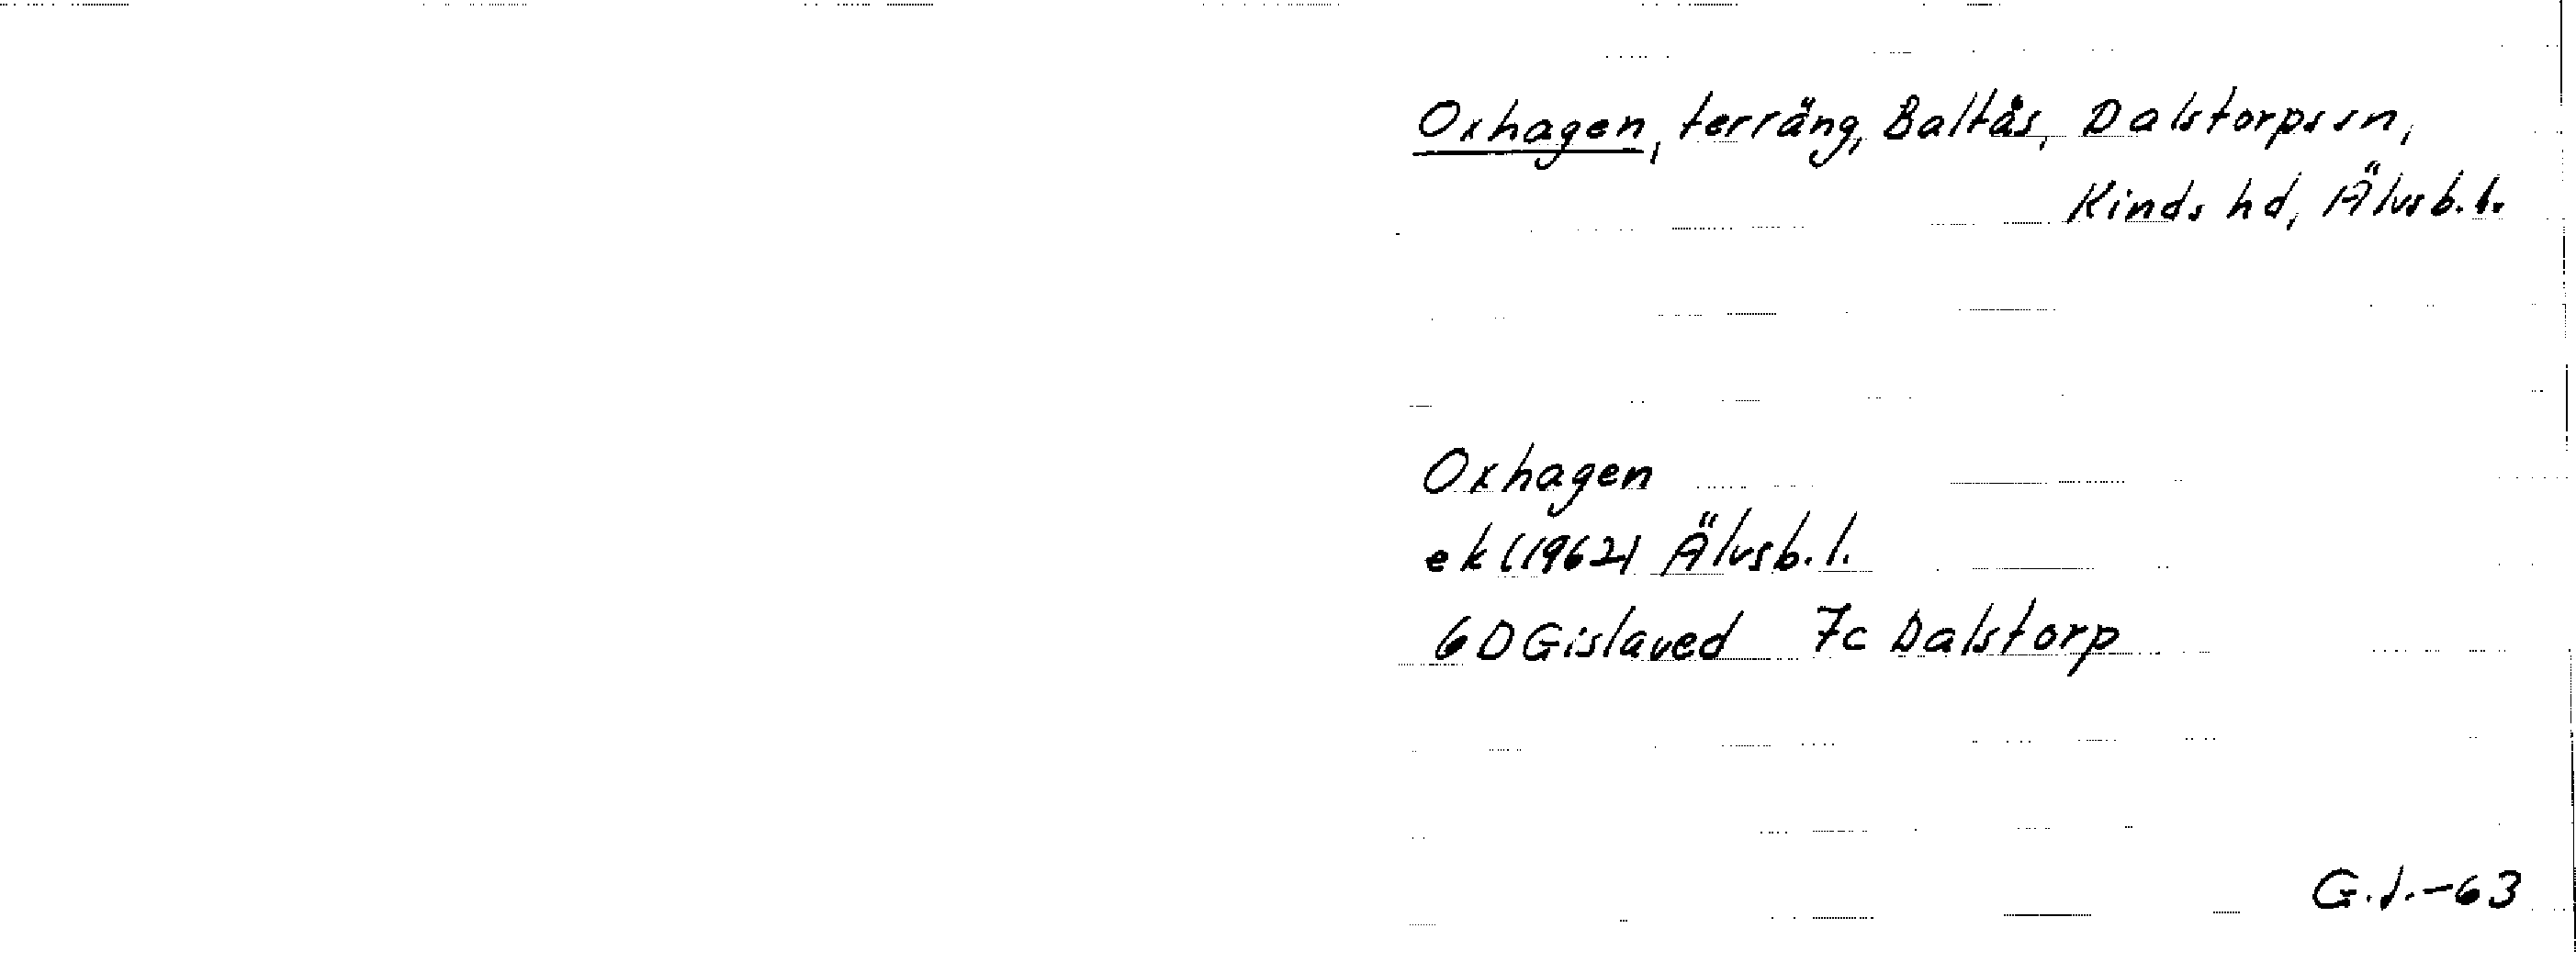 Oxhagen, terräng, Baltås, Dalstorps sn,
Kinds hd, Älvsb. l.
Oxhagen
ek (1962) Älvsb. l.
6D Gislaved 7c Dalstorp
G.J.-63